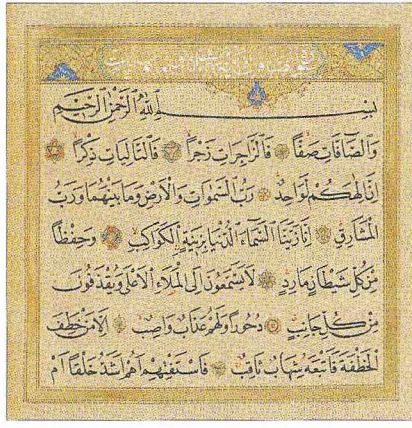 بسم الله الرحمن الرحيم
وَالصَّافَّاتِ صَفًّا فَالزَّاجِرَاتِ زَجْرًا فَالتَّالِيَاتِ ذِكْرًا
إِنَّ إِلٰهَكُمْ لَوَاحِدٌ رَبُّ السَّمٰوَاتِ وَالْأَرْضِ وَمَا بَيْنَهُمَا وَرَبُّ
الْمَشَارِقِ إِنَّا زَيَّنَّا السَّمَاءَ الدُّنْيَا بِزِينَةٍ الْكَوَاكِبِ وَحِفْظًا
مِنْ كُلِّ شَيْطَانٍ مَارِدٍ لَا يَسَّمَّعُونَ إِلَى الْمَلَإِ الْأَعْلَى وَيُقْذَفُونَ
مِنْ كُلِّ جَانِبٍ دُحُورًا وَلَهُمْ عَذَابٌ وَاصِبٌ إِلَّا مَنْ خَطِفَ
الْخَطْفَةَ فَأَتْبَعَهُ شِهَابٌ ثَاقِبٌ فَاسْتَفْتِهِمْ أَهُمْ أَشَدُّ خَلْقًا أَمْ